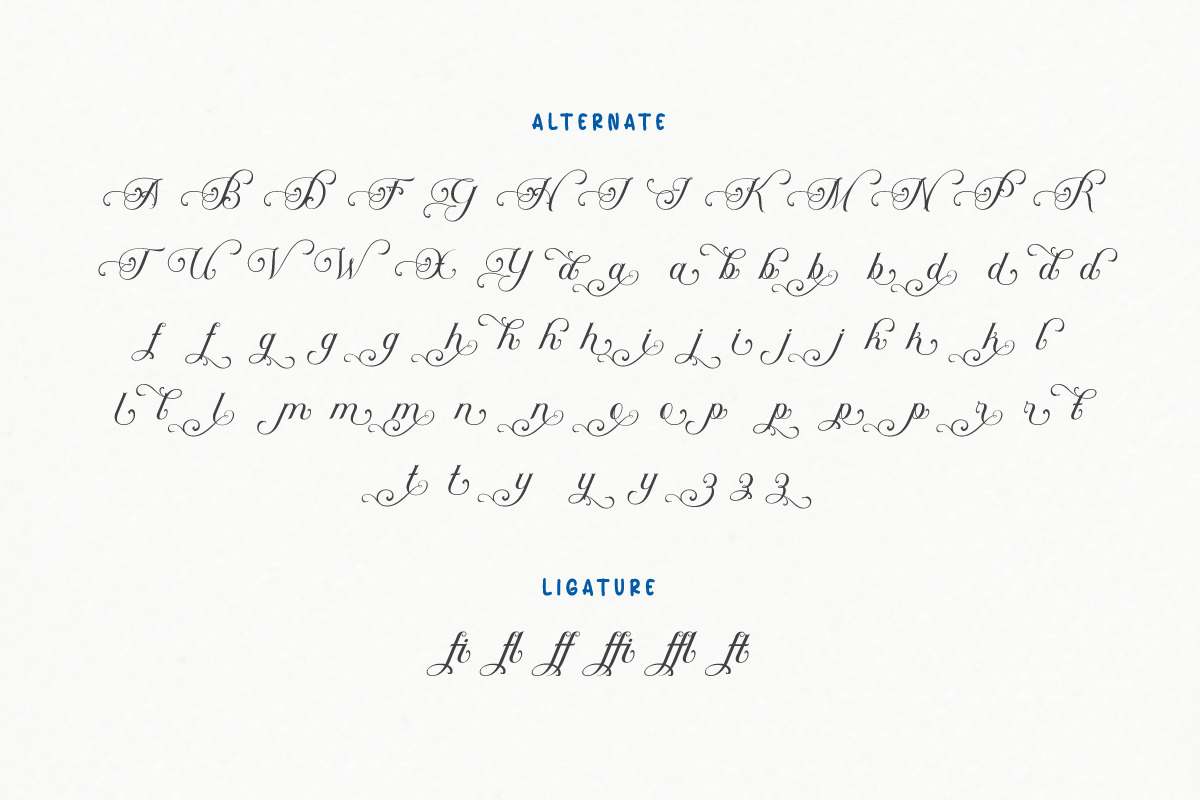 ALTERNATE
A B D F G H I J K M N P R
T U V W X Y d a a b b b b d d d d
f f g g g h h h h i j i j j k k k l
l l l m m m n n o o p p p p r r t
t t y y y z z z
LIGATURE
fi fl ff ffi ffl ft